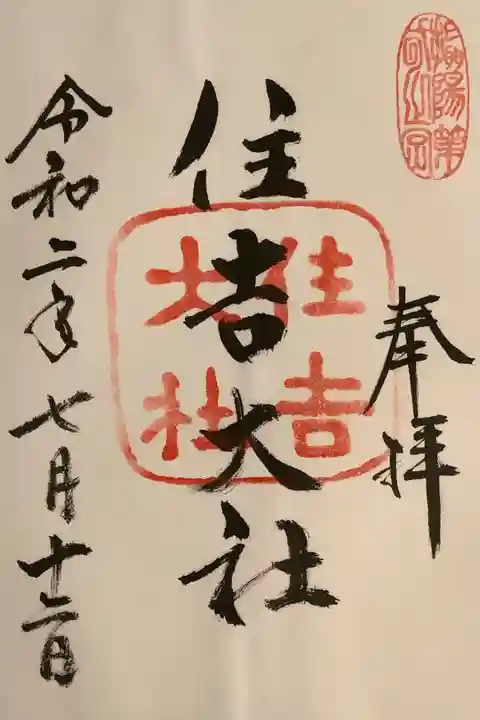 奉拝
住吉大社
住吉
大社
令和二年七月十二日